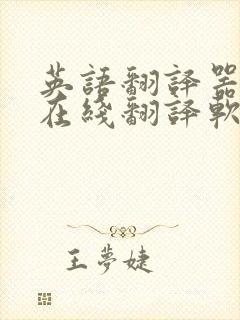 英語翻譯器
在綫翻譯軟
王夢婕